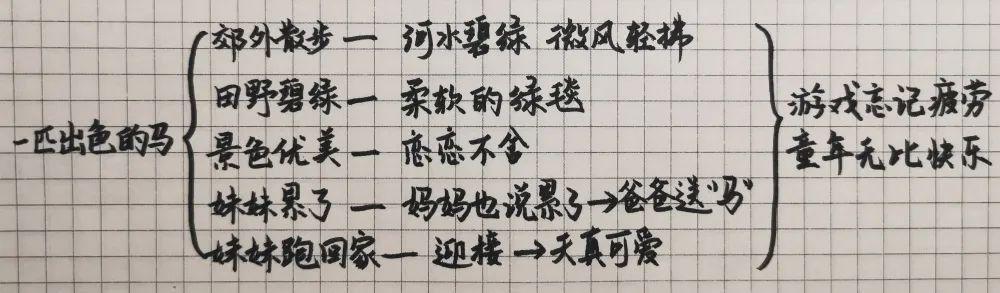 一匹出色的马
郊外散步 — 河水碧绿 微风轻拂
田野碧绿 — 柔软的绿毯
景色优美 — 恋恋不舍
妹妹累了 — 妈妈也说累了→爸爸送“马”
妹妹跑回家 — 迎接 →天真可爱
游戏忘记疲劳
童年无比快乐